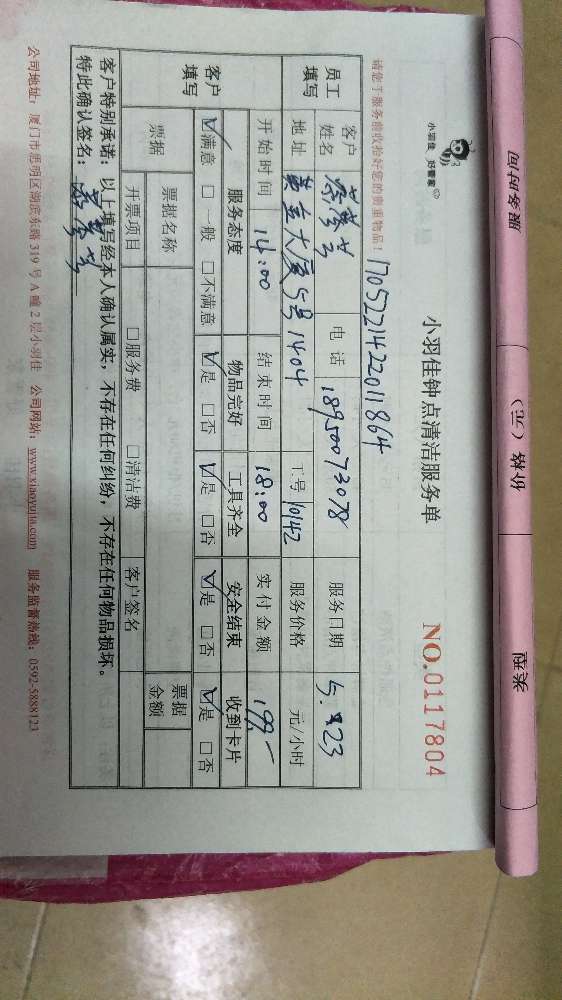 服务时间
价格（元）
小羽佳 好管家
小羽佳钟点清洁服务单
NO.0117804
请您于服务前收拾好您的贵重物品！
1705221422011864
员工填写
客户姓名
电话 18950073078
服务日期 5.23
地址 黄金大厦5号1404
工号 10142
服务价格 元/小时
客户填写
开始时间 14:00
结束时间 18:00
实付金额 199.-
服务态度 物品完好 工具齐全 安全结束 收到卡片
☑满意 □一般 □不满意 ☑是 □否 ☑是 □否 ☑是 □否 ☑是 □否
票据 票据名称 票据金额
开票项目 □服务费 □清洁费 客户签名
客户特别承诺：以上填写经本人确认属实，不存在任何纠纷，不存在任何物品损坏。
特此确认签名：
公司地址：厦门市思明区湖滨东路 319 号 A 幢 2 层小羽佳 公司网站：www.xiaoyujia.com 服务监督热线：0592-5888123